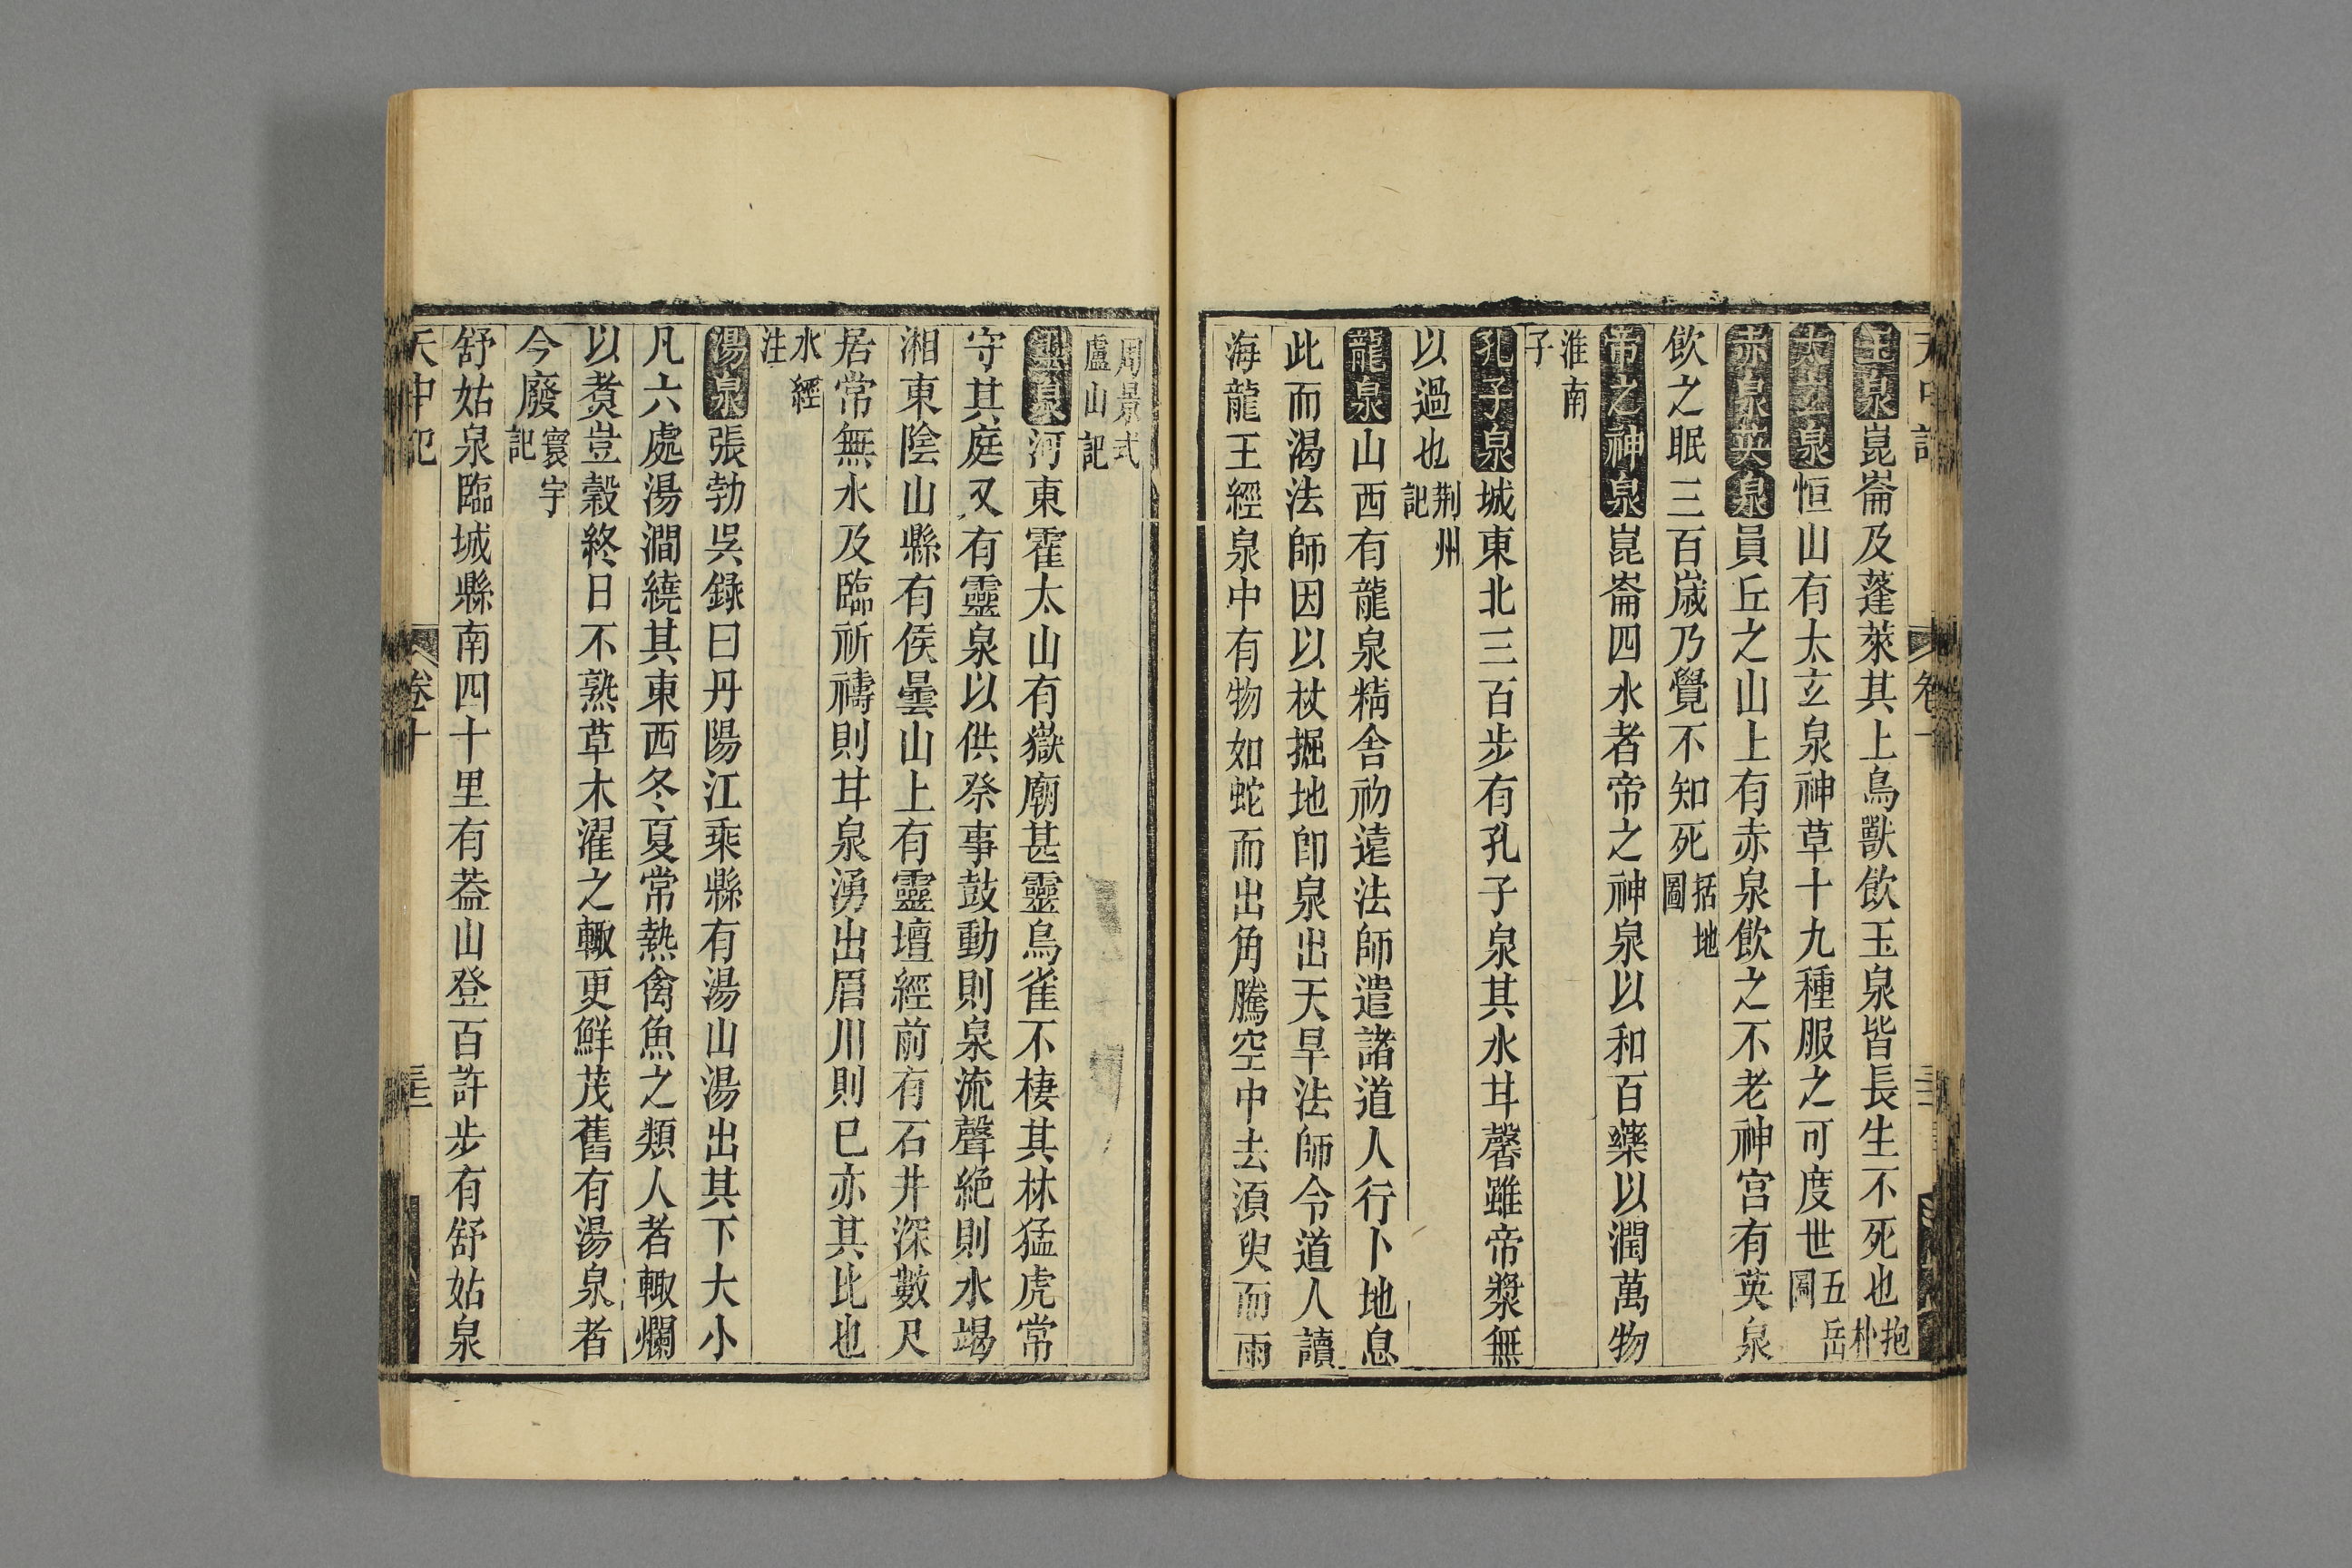 玉泉崑崙及蓬萊其上鳥獸飲玉泉皆長生不死也抱朴
太玄泉恒山有太玄泉神草十九種服之可度世五岳圖
赤泉英泉員丘之山上有赤泉飲之不老神宫有英泉
飲之眠三百歲乃覺不知死括地圖
帝之神泉崑崙四水者帝之神泉以和百藥以潤萬物
淮南子
孔子泉城東北三百步有孔子泉其水甘馨雖帝漿無
以過也荆州記
龍泉山西有龍泉精舍初遠法師遣諸道人行卜地息
此而渴法師因以杖掘地卽泉出天旱法師令道人讀
海龍王經泉中有物如蛇而出角騰空中去湏臾而雨
周景式盧山記
靈泉河東霍太山有嶽廟甚靈鳥雀不棲其林猛虎常
守其庭又有靈泉以供祭事鼓動則泉流聲絶則水竭
湘東陰山縣有侯曇山上有靈壇經前有石井深數尺
居常無水及臨祈禱則甘泉湧出眉川則已亦其比也
水經注
湯泉張勃吳錄曰丹陽江乘縣有湯山湯出其下大小
凡六處湯澗繞其東西冬夏常熱禽魚之類人者輙爛
以煑豈穀終日不熟草木濯之輙更鮮茂舊有湯泉者
今廢寰宇記
舒姑泉臨城縣南四十里有葢山登百許步有舒姑泉
天中記 卷十